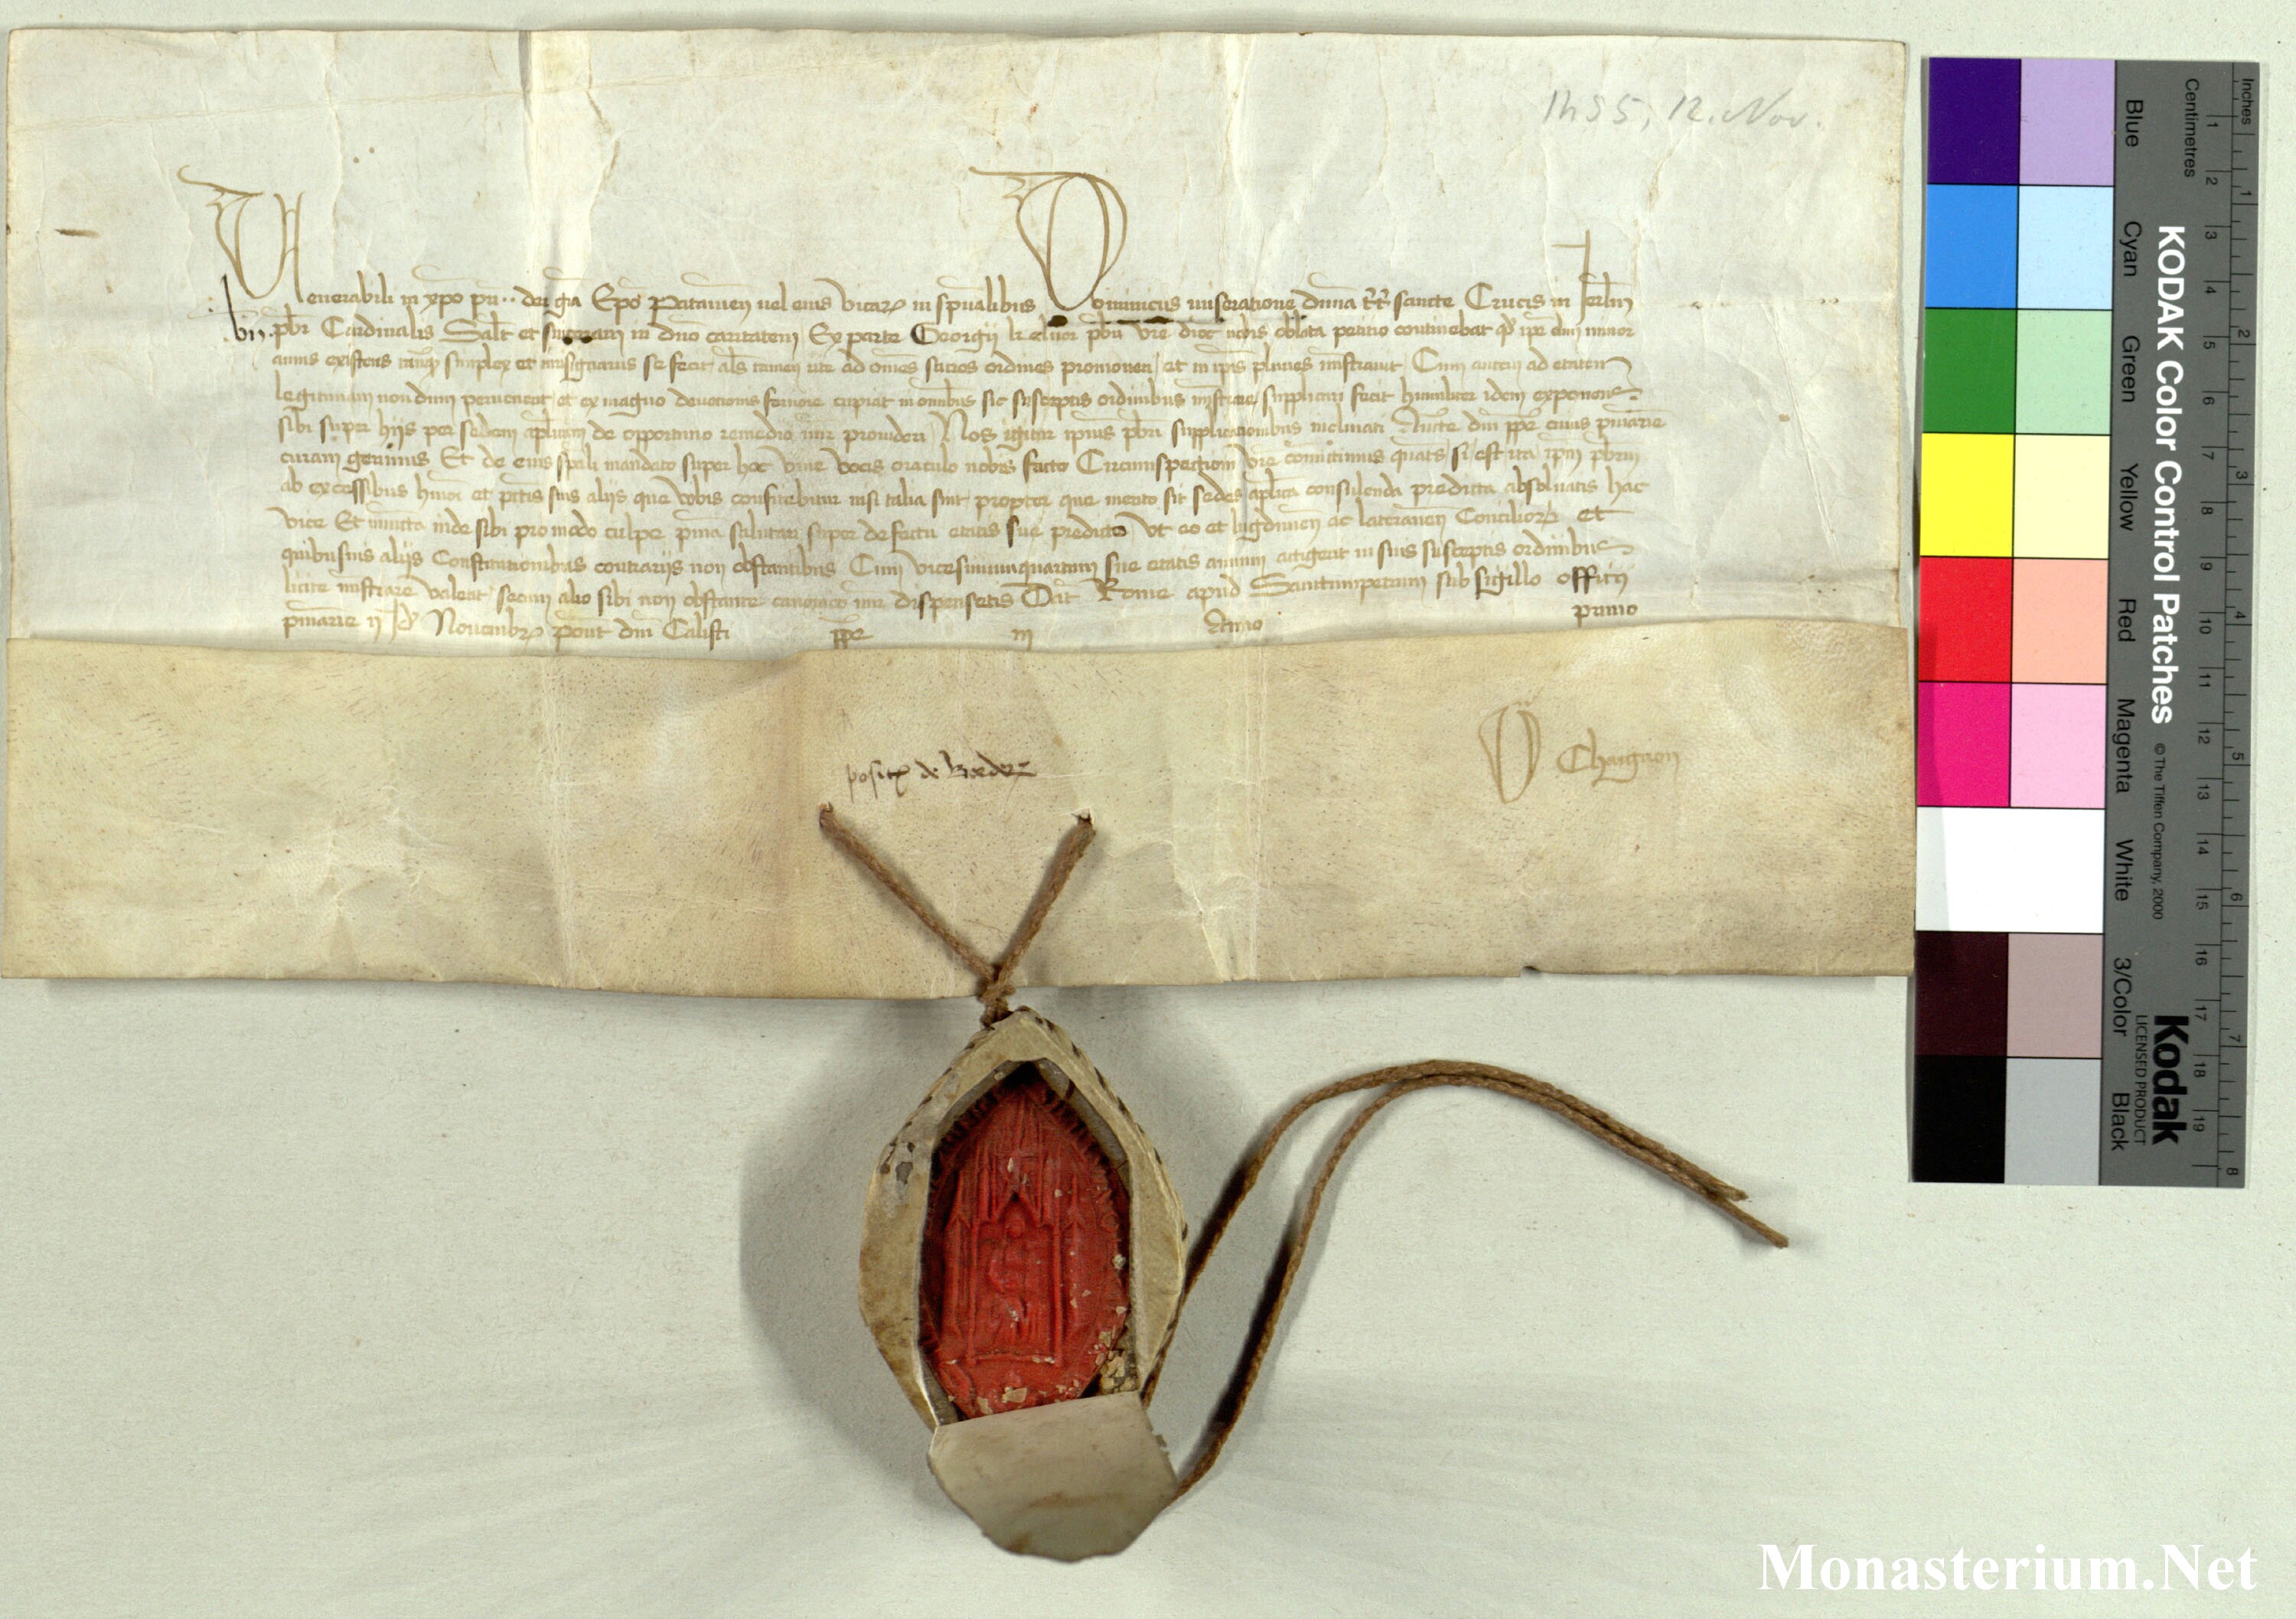 1455, 12. Nov.
Venerabili in xpo pri ·· dei gra Epo Patavien vel eius vicar in spualibus Dominicus miseratione diuina tt sancte Crucis in Jerlm
pbr Cardinalis Salt et sinceram in dno caritatem Ex parte Georgii pbri vre dioc nobis oblata petitio continebat qd ipe olim minor
annis existens tanq simplex et iurisignarus se fecit als tamen rite ad omes sacros ordines promoueri et in ipis pluries mistrauit Cum autem ad etatem
legitimam nondum peruenerit et ex magno deuotionis feruore cupiat in omibus sic susceptis ordinibus mistrare supplicari fecit humiliter idem exponens
sibi super hijs per sedem aplicam de oportuno remedio mir prouideri Nos igitur ipius pbri supplicationibus inclinati Aucte dni ppe cuius pmarie
curam gerimus Et de eius spali mandato super hoc viue vocis oraculo nobis facto Circumspectioni vre comittimus quats si est ita ipm pbrm
ab excessibus hmoi et pctis suis alijs que vobis confitebitur nisi talia sint propter que merito sit sedes aplica consulenda predicta absoluatis hac
vice Et iniuncta inde sibi pro modo culpe pnia salutari super defectu etatis sue predicto vt eo et lugdunen ac lateranen Concilior et
quibusuis alijs Constitutionibus contrarijs non obstantibus Cum vicesimumquartum sue etatis annum attigerit in suis susceptis ordinibus
licite mistrare valeat secum alio sibi non obstante canonico mir dispensetis Dat Rome apud Sanctumpetrum sub sigillo officij
pmarie ij Id Nouembr Pont dni Calisti ppe iij Anno primo
posit de
D Chaignon
KODAK Color Control Patches
© The Tiffen Company, 2000
Kodak
LICENSED PRODUCT
Blue Cyan Green Yellow Red Magenta White 3/Color Black
Inches 1 2 3 4 5 6 7 8
Centimetres 1 2 3 4 5 6 7 8 9 10 11 12 13 14 15 16 17 18 19
Monasterium.Net